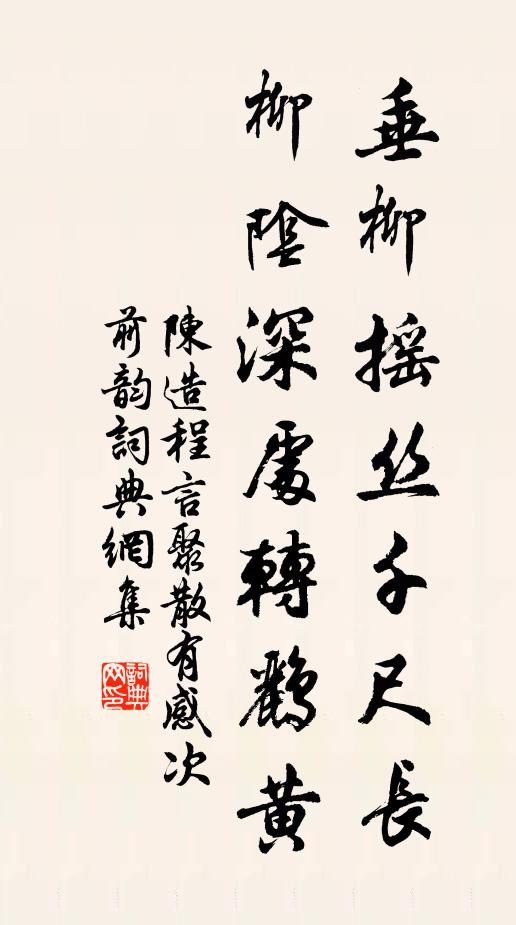 垂柳摇丝千尺長
柳陰深處轉鸝黄
陳造程言聚散有感次
前韵詞典網集
詞典网印